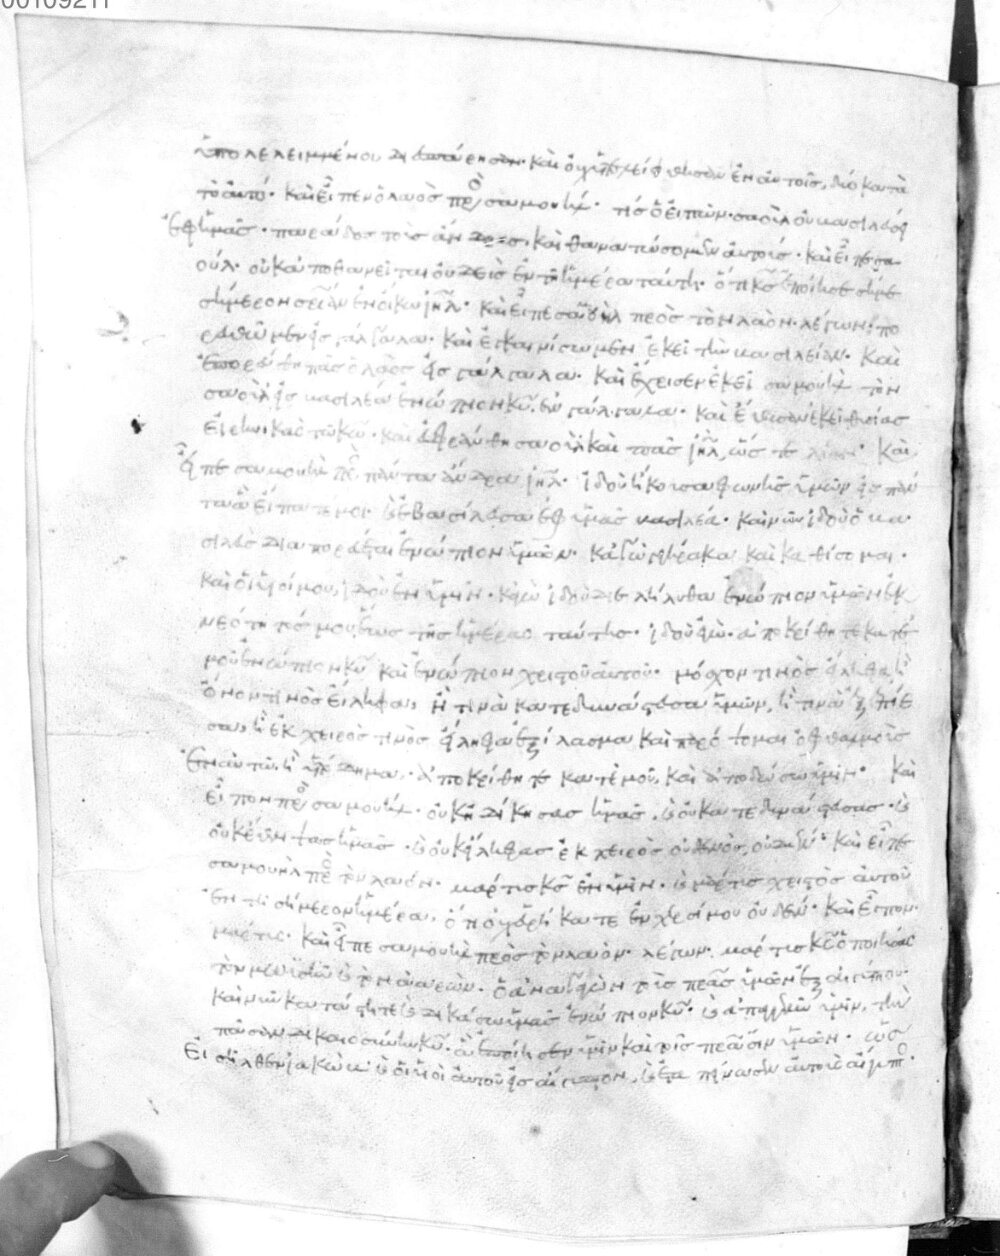 ὑπολελειμμένοι διεσπάρησαν. καὶ οὐχ ὑπελείφθησαν ἐν αὐτοῖς δύο κατὰ
τὸ αὐτό. καὶ εἶπεν ὁ λαὸς πρὸς σαμουήλ. τίς ὁ εἴπων σαοὺλ οὐ βασιλεύσει
ἐφ ἡμᾶς. παράδος τοὺς ἄνδρας καὶ θανατώσομεν αὐτούς. καὶ εἶπε σα
οὺλ. οὐκ ἀποθανεῖται οὐδεὶς ἐν τῆ ἡμέρα ταύτη. ὅτι κς ἐποίησε
σήμερον σρίαν ἐν ιηλ. καὶ εἶπε σαμουὴλ πρὸς τὸν λαὸν λέγων πο
ρευθῶμεν εἰς γάλγαλα. καὶ ἐγκαινίσωμεν ἐκεῖ τὴν βασιλείαν. Καὶ
ἐπορεύθη πᾶς ὁ λαὸς εἰς γάλγαλα. καὶ ἔχρισεν ἐκεῖ σαμουὴλ τὸν
σαοὺλ εἰς βασιλέα ἐνώπιον κυ ἐν γαλγάλοις. καὶ ἔθυσαν ἐκεῖ θυσίας
εἰρηνικὰς τῶ κω. καὶ εὐφράνθη σαοὺλ καὶ πᾶς ιηλ ὥστε λίαν. Καὶ
εἶπε σαμουὴλ πρὸς πάντα ἄνδρα ιηλ. ἰδοὺ ἤκουσα φωνῆς ὑμῶν εἰς πάν
τα ἃ εἴπατέ μοι. καὶ ἐβασίλευσα ἐφ ὑμᾶς βασιλέα. καὶ νῦν ἰδοὺ ὁ βα
σιλεὺς διαπορεύεται ἐνώπιον ὑμῶν. κἀγὼ γεγήρακα καὶ καθίσομαι.
καὶ οἱ υἱοί μου ἰδοὺ ἐν ὑμῖν. κἀγὼ ἰδοὺ διελήλυθα ἐνώπιον ὑμῶν ἐκ
νεότητός μου ἕως τῆς ἡμέρας ταύτης. ἰδοὺ ἐγὼ. ἀποκρίθητε κατ ἐ
μοῦ ἐνώπιον κυ καὶ ἐνώπιον χριστοῦ αὐτοῦ. μόσχον τινὸς εἴληφα ἢ
ὄνον τινὸς εἴληφα, ἢ τινὰ κατεδυνάστευσα ὑμῶν, ἢ τινὰ ἐξεπίε
σα, ἢ ἐκ χειρὸς τινὸς εἴληφα ἐξίλασμα καὶ ὀφθαλμοὺς
ἐν αὐτῶ, ἢ ὑπόδημα. ἀποκρίθητε κατ ἐμοῦ, καὶ ἀποδώσω ὑμῖν. Καὶ
εἶπον πρὸς σαμουήλ. οὐκ ἠδίκησας ἡμᾶς, καὶ οὐ κατεδυνάστευσας. καὶ
οὐκ ἔθλασας ἡμᾶς. καὶ οὐκ εἴληφας ἐκ χειρὸς οὐδενὸς οὐδέν. καὶ εἶπε
σαμουὴλ πρὸς τὸν λαόν. μάρτυς κς ἐν ὑμῖν. καὶ μάρτυς χριστὸς αὐτοῦ
ἐν τῆ σήμερον ἡμέρα, ὅτι οὐχ εὕρητε ἐν χειρί μου οὐδέν. καὶ εἶπον
μάρτυς. καὶ εἶπε σαμουὴλ πρὸς τὸν λαὸν λέγων. μάρτυς κς ὁ ποιήσας
τὸν μωυσῆν καὶ τὸν ἀαρών. ὁ ἀναγαγὼν τοὺς πρας ὑμῶν ἐξ αἰγύπτου.
καὶ νῦν κατάστητε καὶ δικάσω ὑμᾶς ἐνώπιον κυ. καὶ ἀπαγγελῶ ὑμῖν τὴν
πᾶσαν δικαιοσύνην κυ. ἃ ἐποίησεν ὑμῖν καὶ τοῖς πρασιν ὑμῶν. ὡς
εἰσῆλθεν ἰακὼβ καὶ οἱ υἱοὶ αὐτοῦ εἰς αἴγυπτον, καὶ ἐταπείνωσεν αὐτοὺς αἴγυπτος.